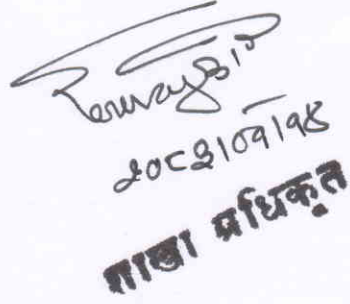 २०८३।०१।१४
शाखा अधिकृत